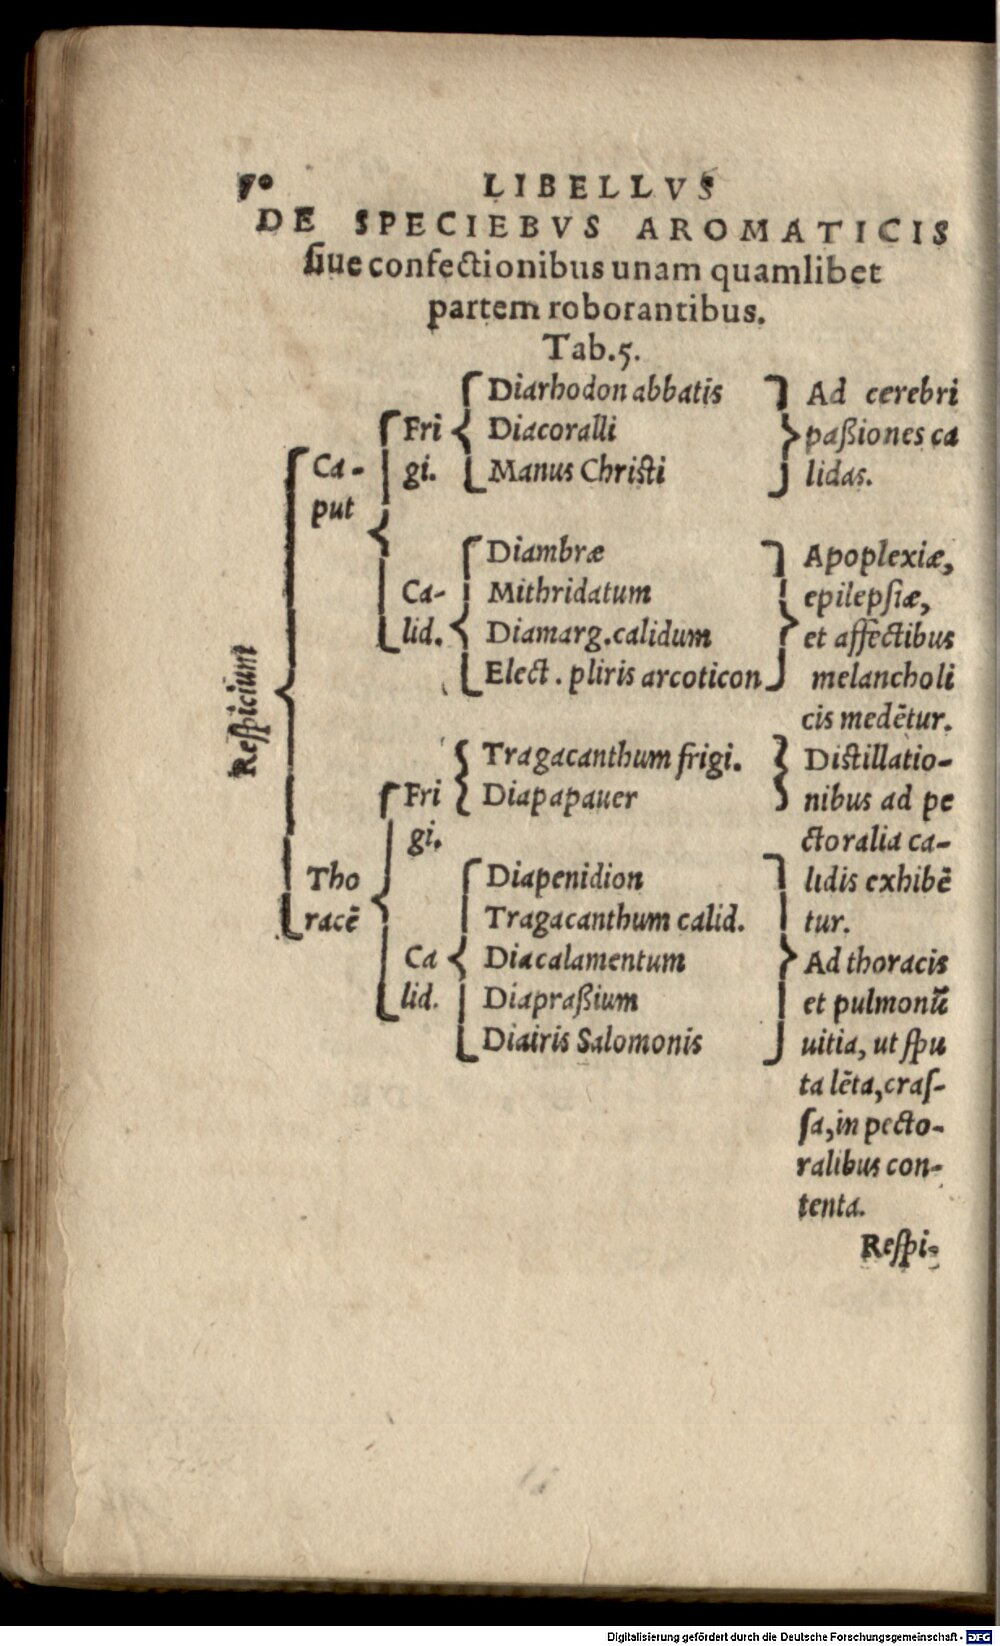 70 LIBELLVS
DE SPECIEBVS AROMATICIS
ſiue confectionibus unam quamlibet
partem roborantibus.
Tab.5.
Reſpiciunt
Ca-
put
Fri
gi.
Diarhodon abbatis
Diacoralli
Manus Chriſti
Ad cerebri
paßiones ca
lidas.
Ca-
lid.
Diambræ
Mithridatum
Diamarg.calidum
Elect. pliris arcoticon
Apoplexiæ,
epilepſiæ,
et affectibus
melancholi
cis medētur.
Tho
racē
Fri
gi.
Tragacanthum frigi.
Diapapauer
Diſtillatio-
nibus ad pe
ctoralia ca-
lidis exhibē
tur.
Ca
lid.
Diapenidion
Tragacanthum calid.
Diacalamentum
Diapraßium
Diairis Salomonis
Ad thoracis
et pulmonū
uitia, ut ſpu
ta lēta,craſ-
ſa,in pecto-
ralibus con-
tenta.
Reſpi-
Digitalisierung gefördert durch die Deutsche Forschungsgemeinschaft - DFG